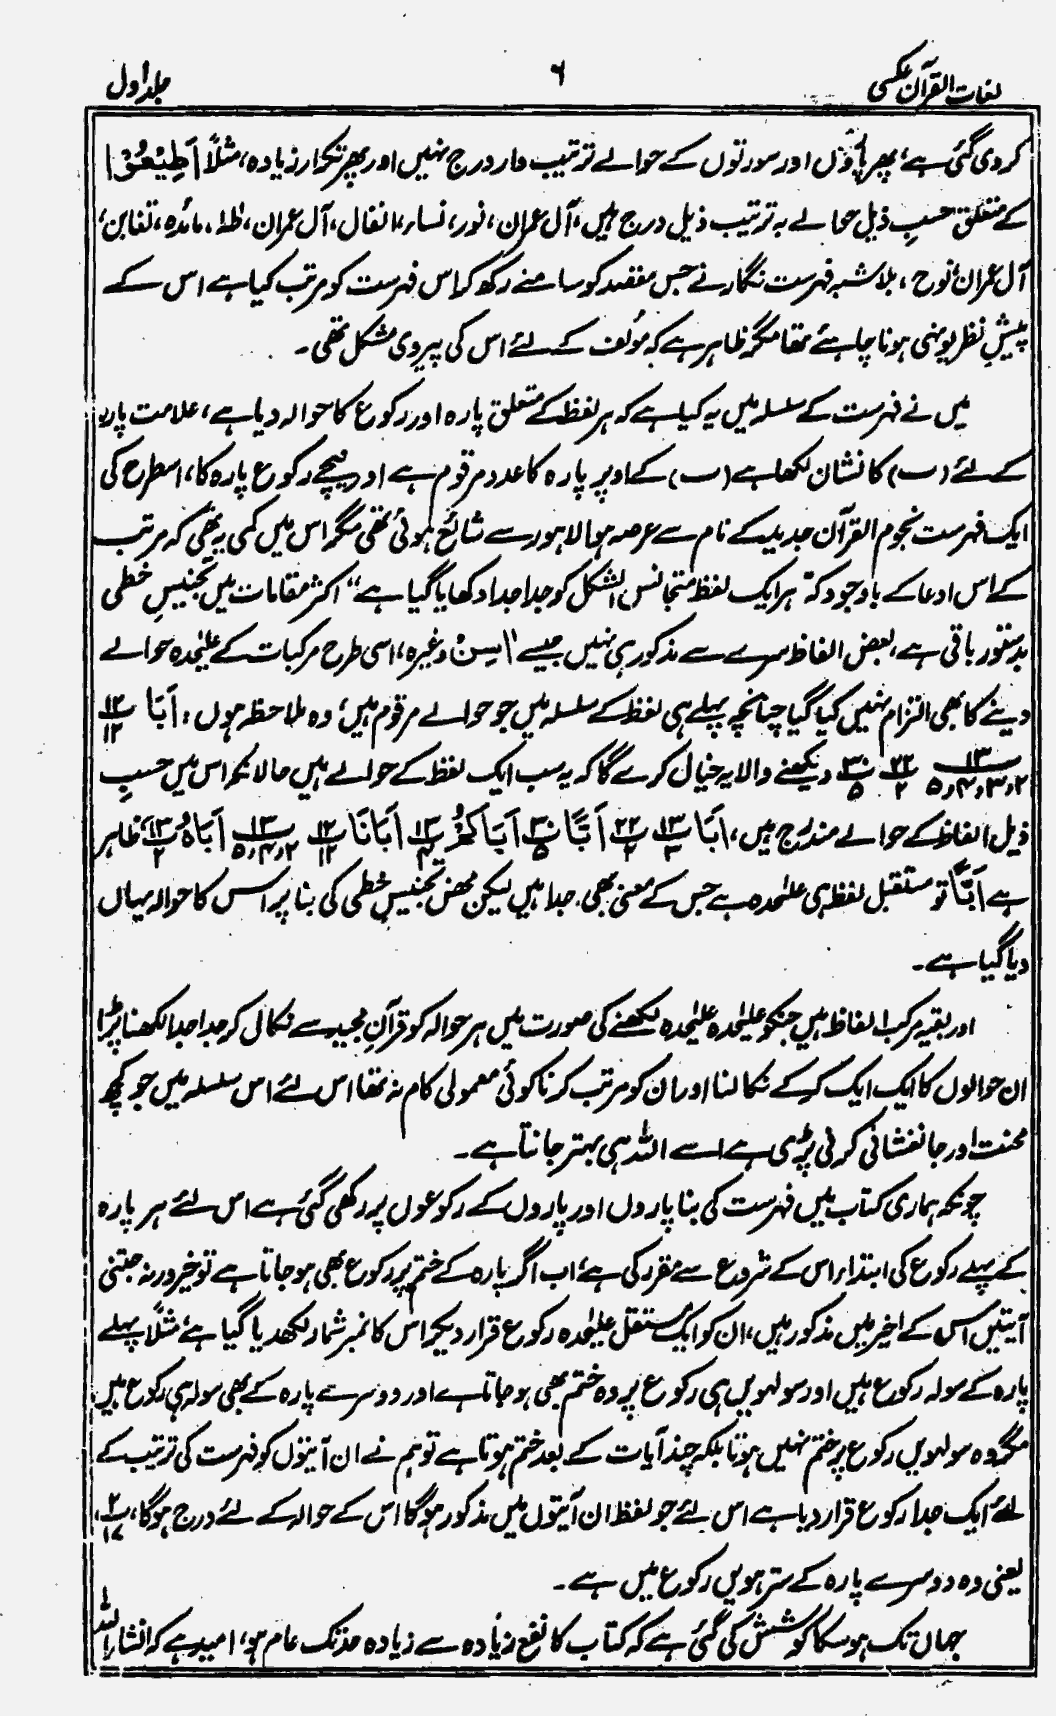 لغات القرآن عکسی ۶ جلد اول
کر دی گئی ہے، پھر پاروں اور سورتوں کے حوالے ترتیب وار درج نہیں اور پھر تکرار زیادہ، مثلاً اَطِیْعُوْا
کے متعلق حسبِ ذیل حوالے بہ ترتیب ذیل درج ہیں، آل عمران، نور، نساء، انفال، آل عمران، طٰہٰ، مائدہ، تغابن،
آل عمران، نوح، بلاشبہ فہرست نگار نے جس مقصد کو سامنے رکھ کر اس فہرست کو مرتب کیا ہے اس کے
پیشِ نظر یونہی ہونا چاہئے تھا مگر ظاہر ہے کہ مؤلف کے لئے اس کی پیروی مشکل تھی۔
میں نے فہرست کے سلسلہ میں یہ کیا ہے کہ ہر لفظ کے متعلق پارہ اور رکوع کا حوالہ دیا ہے، علامت پارہ
کے لئے (ب) کا نشان لکھا ہے (ب) کے اوپر پارہ کا عدد مرقوم ہے اور نیچے رکوع پارہ کا، اسطرح کی
ایک فہرست نجوم القرآن جدید کے نام سے عرصہ ہوا لاہور سے شائع ہوئی تھی مگر اس میں کمی یہ تھی کہ مرتب
کے اس ادعا کے باوجود کہ ”ہر ایک لفظ متجانس الشکل کو جدا جدا دکھایا گیا ہے“ اکثر مقامات میں تجنیسِ خطی
بدستور باقی ہے، بعض الفاظ سرے سے مذکور ہی نہیں جیسے اٰسِنٍ وغیرہ، اسی طرح مرکبات کے علیٰحدہ حوالے
دینے کا بھی التزام نہیں کیا گیا چنانچہ پہلے ہی لفظ کے سلسلہ میں جو حوالے مرقوم ہیں، وہ ملاحظہ ہوں، اَبَا ۱۲ب۱۲
۱۳ب۲،۳،۴،۵ ۲۲ب۲ ۳۰ب۵ دیکھنے والا یہ خیال کرے گا کہ یہ سب ایک لفظ کے حوالے ہیں حالانکہ اس میں حسبِ
ذیل الفاظ کے حوالے مندرج ہیں، اَبَا ۱۳ب۳ ۲۲ب۲ اَبًّا ۳۰ب۵ اَبَاکُمْ ۱۳ب۴ اَبَانَا ۱۲ب۱۲ ۱۳ب۲،۴،۵ اَبَاہُ ۱۳ب۲ ظاہر
ہے اَبًّا تو مستقبل لفظ ہی علیٰحدہ ہے جس کے معنی بھی جدا ہیں لیکن محض تجنیسِ خطی کی بنا پر اس کا حوالہ یہاں
دیا گیا ہے۔
اور بقیہ مرکب الفاظ ہیں جنکو علیٰحدہ علیٰحدہ لکھنے کی صورت میں ہر حوالہ کو قرآنِ مجید سے نکال کر جدا جدا لکھنا پڑا
ان حوالوں کا ایک ایک کر کے نکالنا اور ان کو مرتب کرنا کوئی معمولی کام نہ تھا اس لئے اس سلسلہ میں جو کچھ
محنت اور جانفشانی کرنی پڑی ہے اسے اللہ ہی بہتر جانتا ہے۔
چونکہ ہماری کتاب میں فہرست کی بنا پاروں اور پاروں کے رکوعوں پر رکھی گئی ہے اس لئے ہر پارہ
کے پہلے رکوع کی ابتداء اس کے شروع سے مقرر کی ہے، اب اگر پارہ کے ختم پر رکوع بھی ہو جاتا ہے تو خیر ورنہ جتنی
آیتیں اس کے اخیر میں مذکور ہیں، ان کو ایک مستقل علیٰحدہ رکوع قرار دیکر اس کا نمبر شمار لکھدیا گیا ہے، مثلاً پہلے
پارہ کے سولہ رکوع ہیں اور سولہویں ہی رکوع پر وہ ختم بھی ہو جاتا ہے اور دوسرے پارہ کے بھی سولہ ہی رکوع ہیں
مگر وہ سولہویں رکوع پر ختم نہیں ہوتا بلکہ چند آیات کے بعد ختم ہوتا ہے تو ہم نے ان آیتوں کو فہرست کی ترتیب کے
لئے ایک جدا رکوع قرار دیا ہے اس لئے جو لفظ ان آیتوں میں مذکور ہوگا اس کے حوالہ کے لئے درج ہوگا، ۲ب۱۷،
یعنی وہ دوسرے پارہ کے سترہویں رکوع میں ہے۔
جہاں تک ہو سکا کوشش کی گئی ہے کہ کتاب کا نفع زیادہ سے زیادہ حد تک عام ہو، امید ہے کہ انشاء اللہ